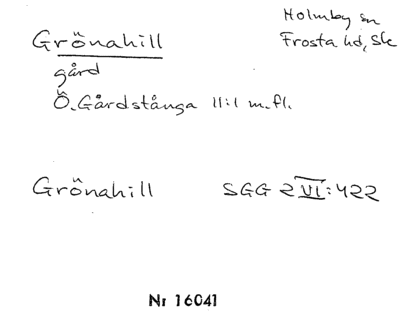 Grönahill
Holmby sn
Frosta hd, Sk
gård
Ö. Gårdstånga 11:1 m.fl.
Grönahill SGG 2 VI:422
Nr 16041